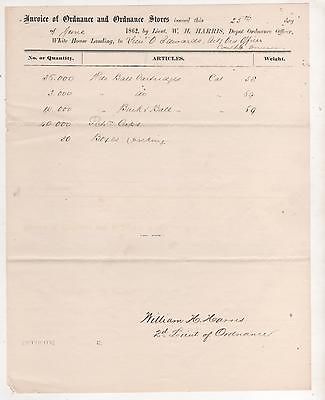 Invoice of Ordnance and Ordnance Stores issued this 25th day
of June 1862, by Lieut. W. H. HARRIS, Depot Ordnance Officer,
White House Landing, to Lieut O Edwards, Act. Ord Officer
No. or Quantity. ARTICLES. Weight.
25.000 Ball Cartridges Cal 58
3.000 " do " 54
10.000 " Buck & Ball " 69
40.000 Caps
30 Boxes Packing
William H. Harris
2d Lieut of Ordnance